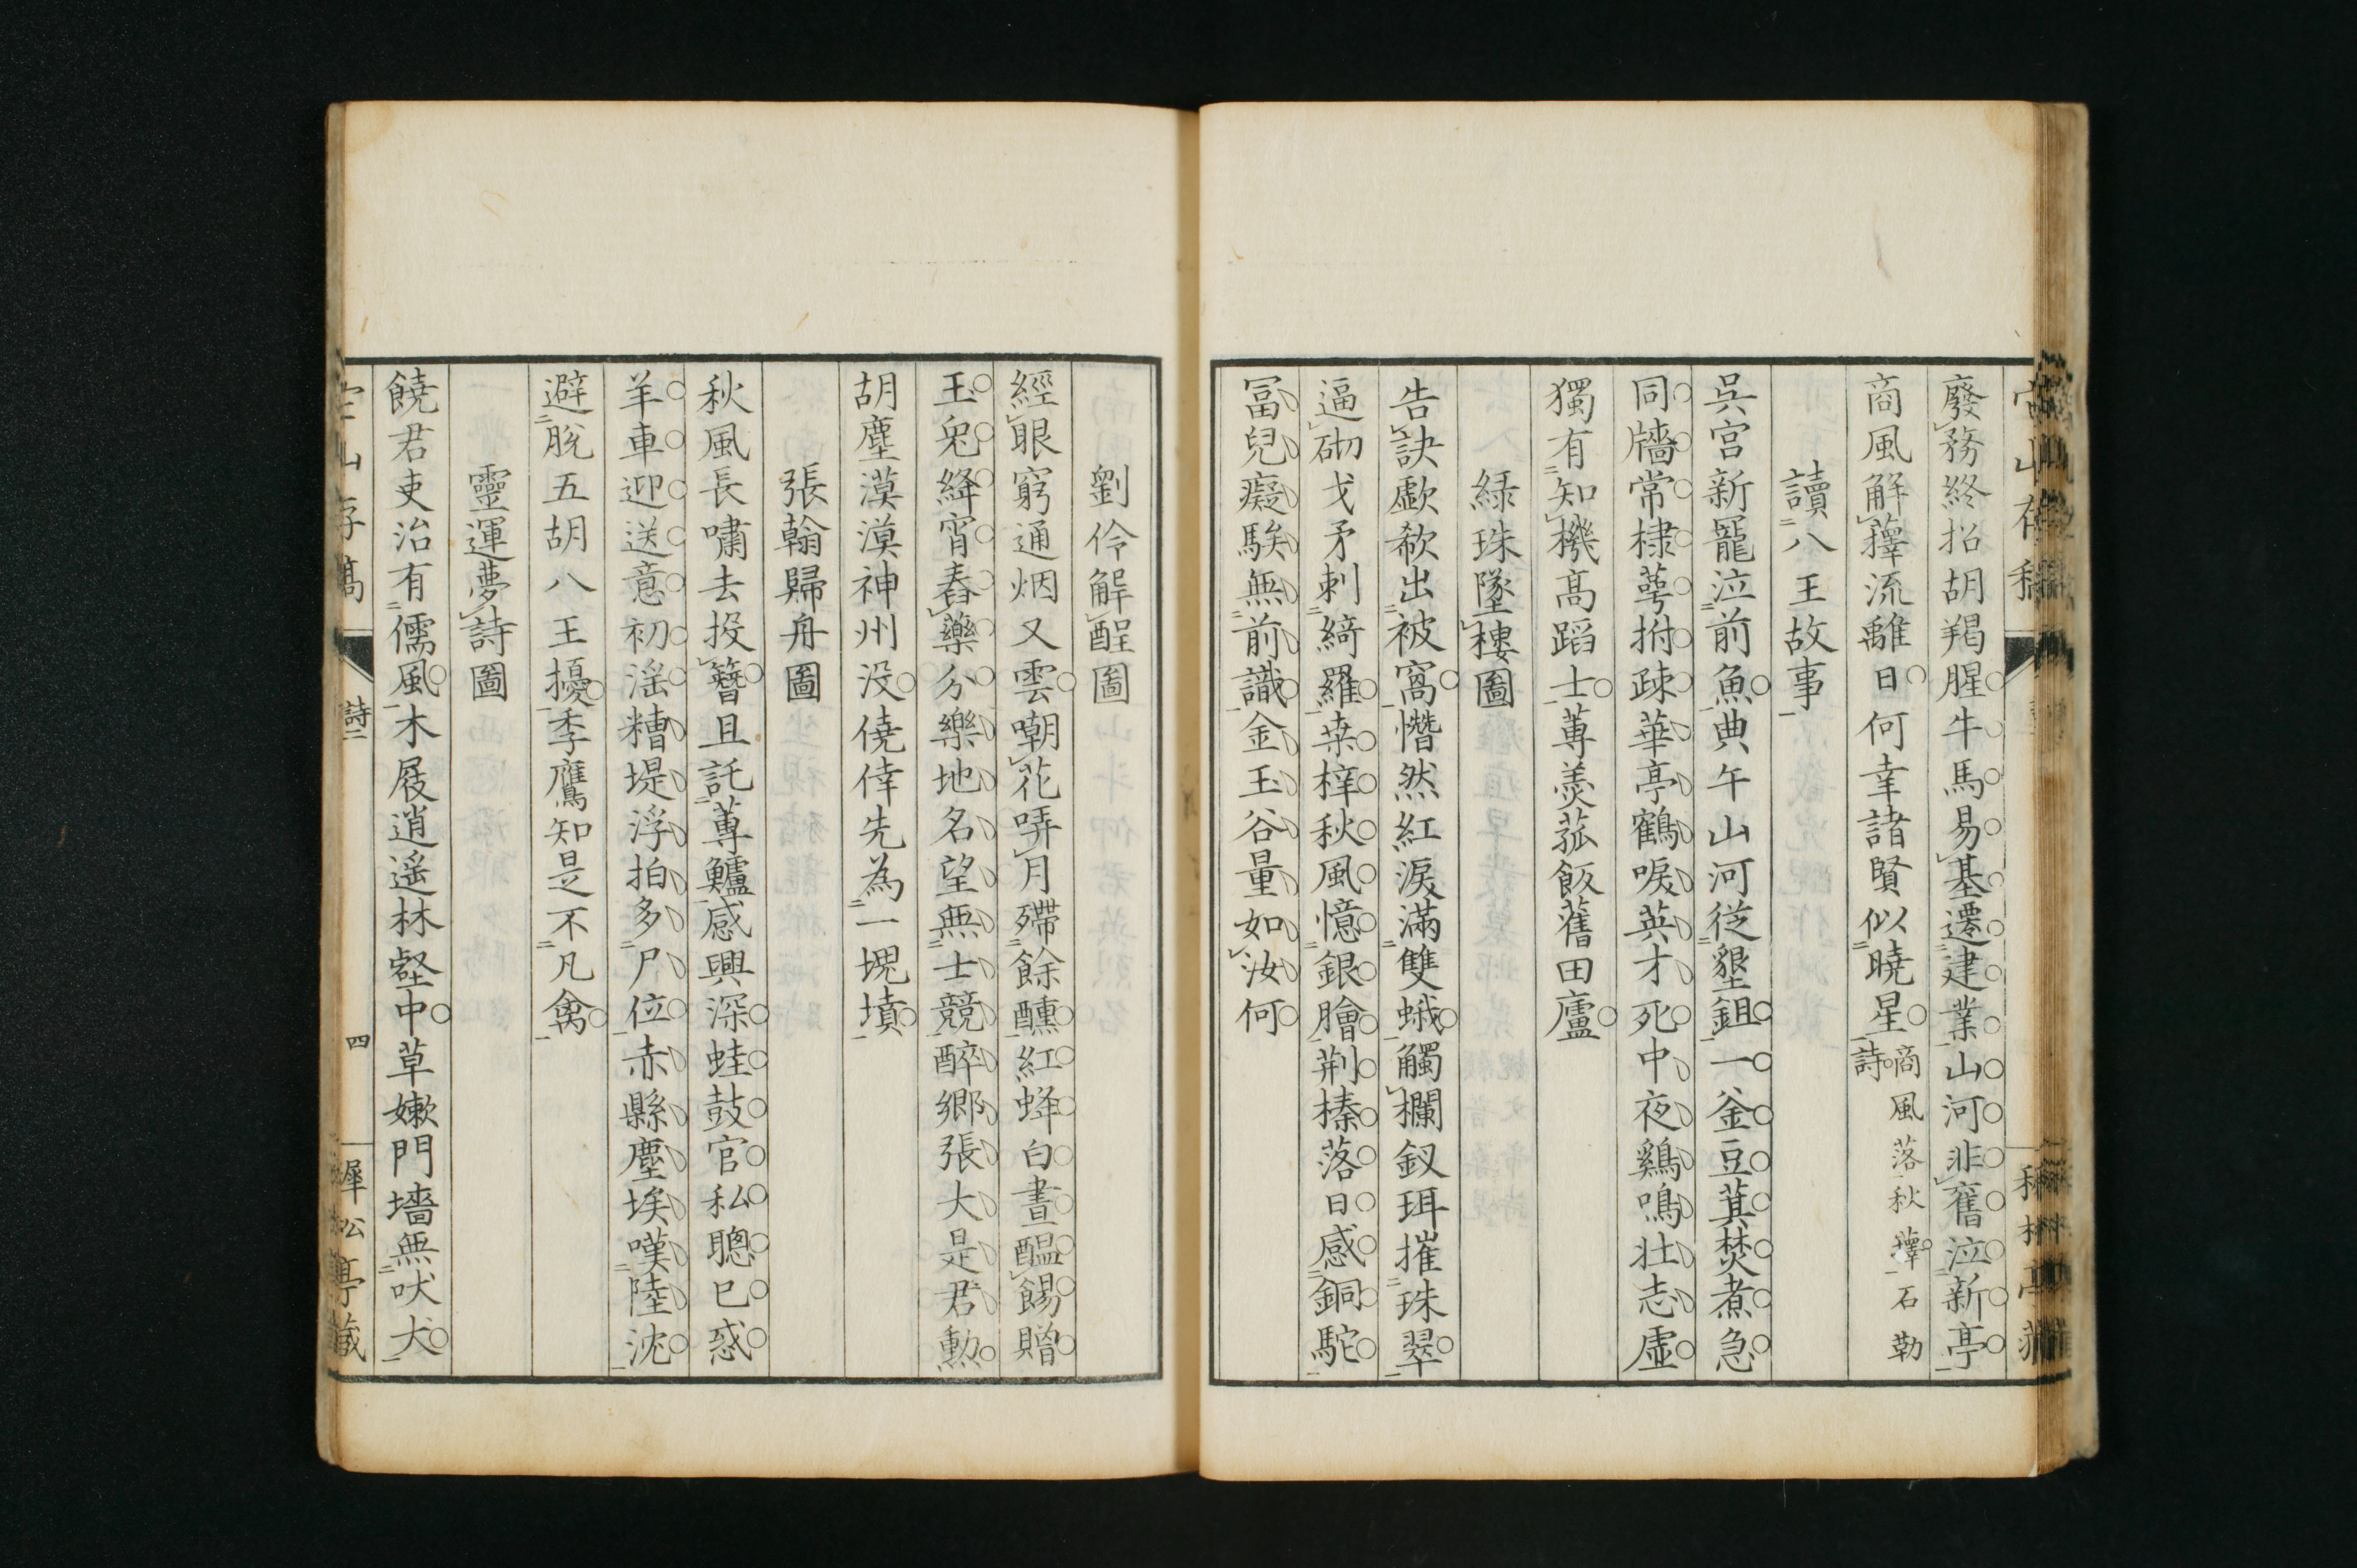 廢務終招胡羯腥牛馬易基遷建業山河非舊泣新亭
商風解蘀流離日何幸諸賢似曉星商風落秋蘀石勒詩
讀八王故事
吳宮新寵泣前魚典午山河從墾鉏一釜豆萁焚煮急
同牆常棣萼拊疎華亭鶴唳英才死中夜鷄鳴壯志虛
獨有知機髙蹈士蓴羹菰飯舊田廬
緑珠墜樓圖
告訣歔欷出被窩懵然紅淚滿雙蛾觸欄釵珥摧珠翠
逼砌戈矛刺綺羅桒梓秋風憶銀膾荆榛落日感銅駝
冨兒癡騃無前識金玉谷量如汝何
劉伶解酲圖
經眼窮通烟又雲嘲花哢月殢餘醺紅蜂白晝醖餳贈
玉兔絳宵舂藥分樂地名望無士競醉鄉張大是君勲
胡塵漠漠神州没僥倖先為一堁墳
張翰歸舟圖
秋風長嘯去投簪且託蓴鱸感興深蛙鼓官私聰已惑
羊車迎送意初滛糟堤浮拍多尸位赤縣塵埃嘆陸沈
避脫五胡八王擾季鷹知是不凡禽
靈運夢詩圖
饒君吏治有儒風木屐逍遥林壑中草嫰門墻無吠犬
詩二
四
犀松亭藏